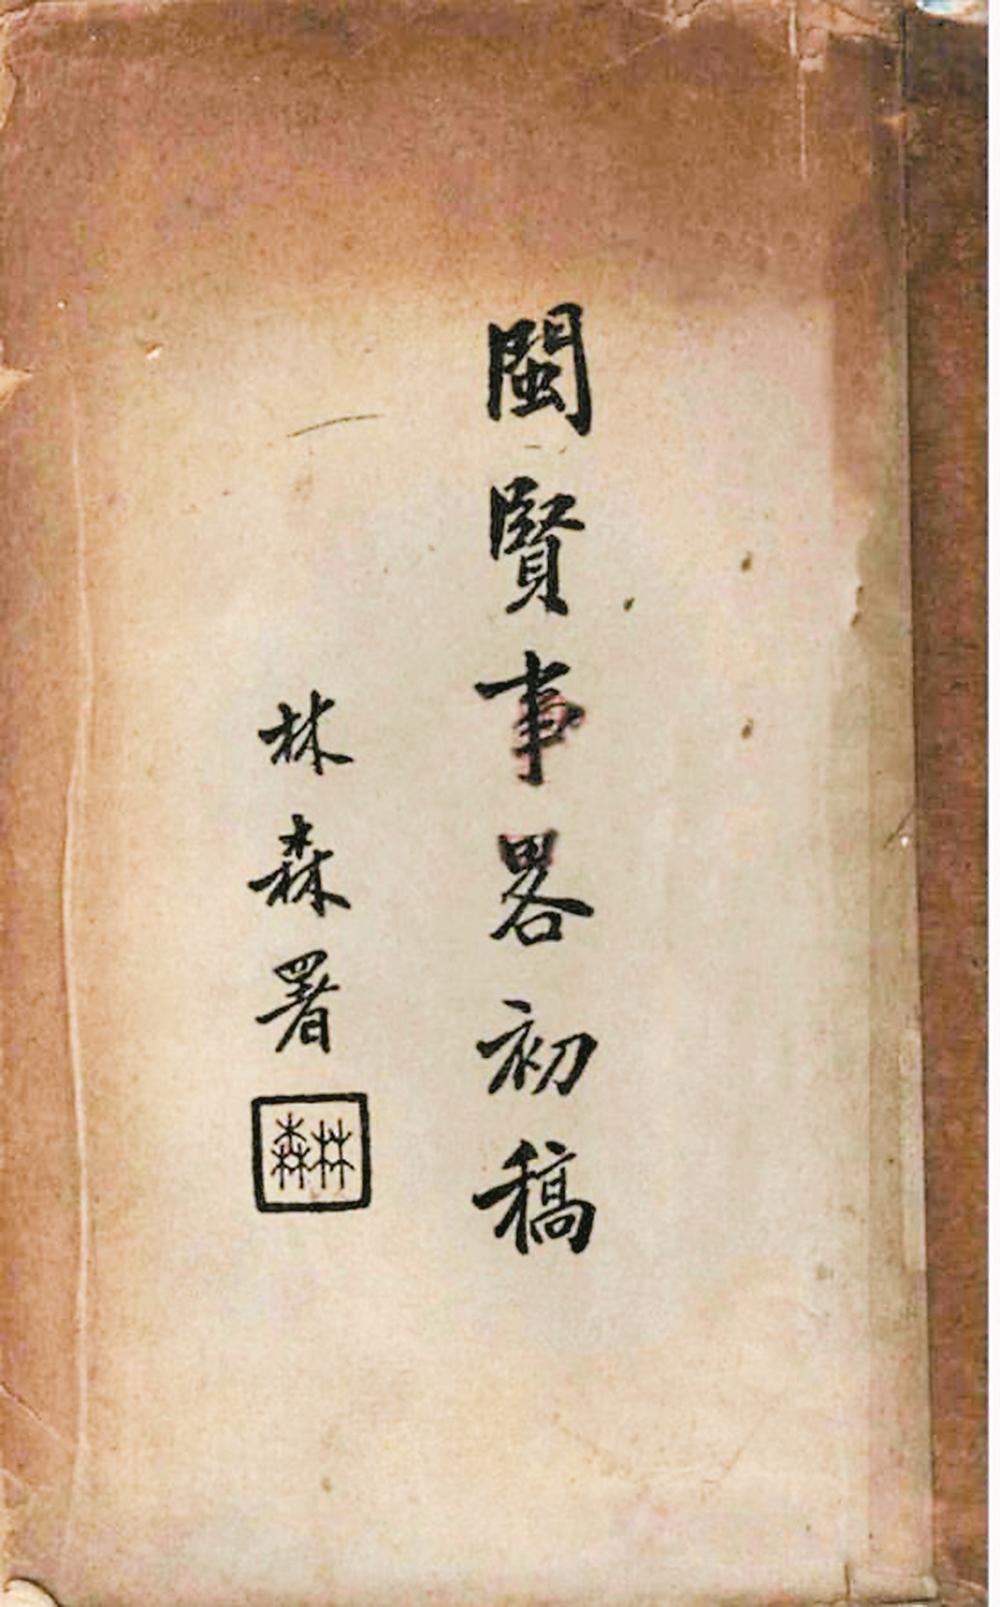 閩賢事畧初稿
林森署
林森